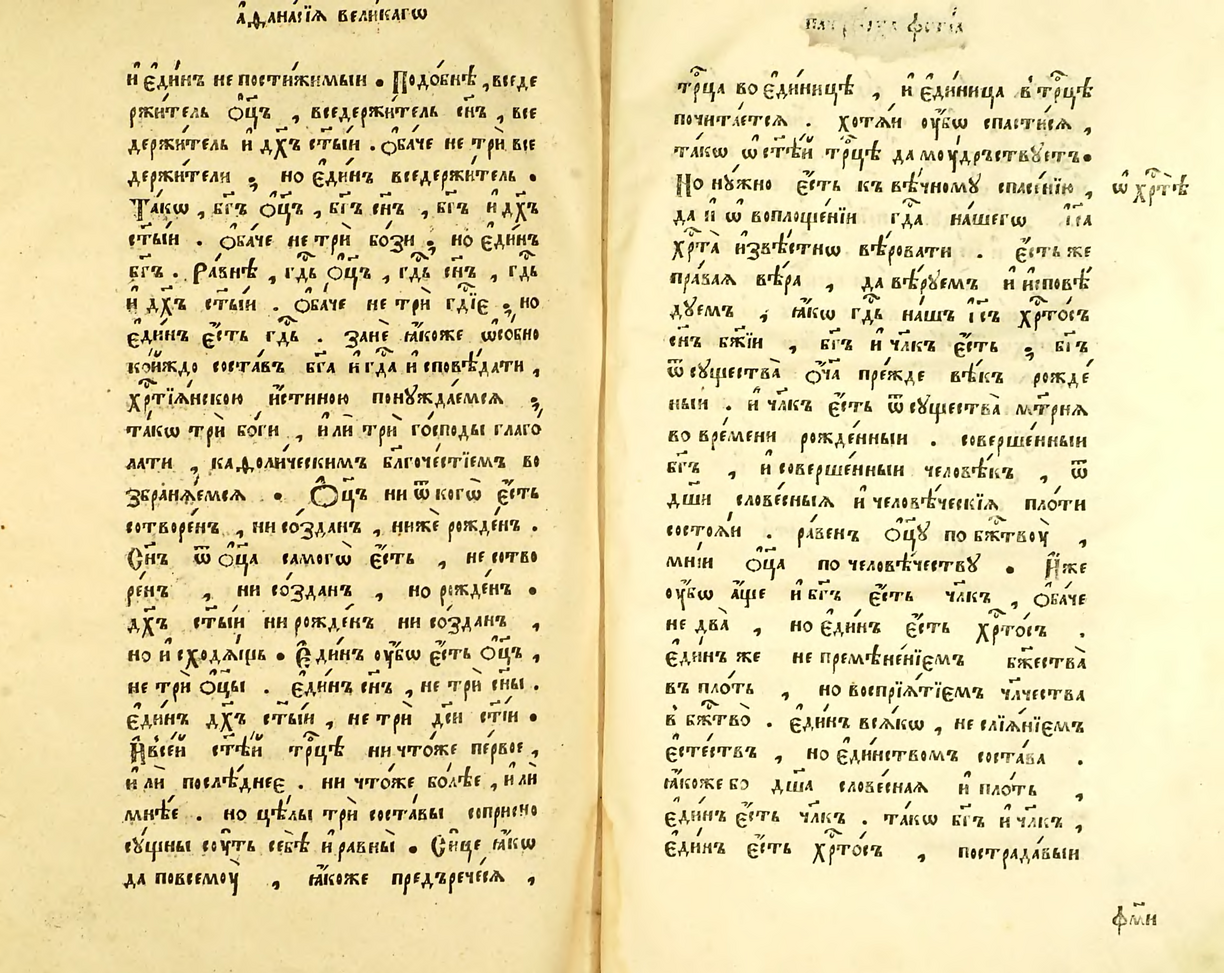 а҆ѳана́сїѧ вели́кагѡ
и҆ є҆ди́нъ не постижи́мыи . Подо́бнѣ , вседе
ржи́тель ѻ҆ц҃ъ , вседержи́тель сн҃ъ , все
держи́тель и҆ дх҃ъ ст҃ы́и . ѻ҆ба́че не трѝ все
держи́тели ; но є҆ди́нъ вседержи́тель .
Та́кѡ , бг҃ъ ѻ҆ц҃ъ , бг҃ъ сн҃ъ , бг҃ъ и҆ дх҃ъ
ст҃ы́и . ѻ҆ба́че не трѝ бо́зи ; но є҆ди́нъ
бг҃ъ . Ра́внѣ , гдⷭ҇ь ѻ҆ц҃ъ , гдⷭ҇ь сн҃ъ , гдⷭ҇ь
и҆ дх҃ъ ст҃ы́и . ѻ҆ба́че не трѝ гдⷭ҇їє ; но
є҆ди́нъ є҆́сть гдⷭ҇ь . занѐ ꙗ҆́коже ѡ҆со́бно
ко́йждо соста́въ бг҃а и҆ гдⷭ҇а и҆сповѣ́дати ,
хрⷭ҇тїѧ́нскою и҆́стиною понꙋжда́емсѧ ;
та́кѡ трѝ бо́ги , и҆лѝ трѝ го́споды глаго́
лати , каѳоли́ческимъ бл҃гоче́стїемъ во
збранѧ́емсѧ . Ѻ҆ц҃ъ ни ѿ когѡ̀ є҆́сть
сотворе́нъ , ни со́зданъ , нижѐ рожде́нъ .
Сн҃ъ ѿ ѻ҆ц҃а самогѡ̀ є҆́сть , не сотво
ре́нъ , ни со́зданъ , но рожде́нъ .
дх҃ъ ст҃ы́и ни рожде́нъ ни со́зданъ ,
но и҆сходѧ́щь . Є҆ди́нъ оу҆́бѡ є҆́сть ѻ҆ц҃ъ ,
не трѝ ѻ҆ц҃ы . є҆ди́нъ сн҃ъ , не трѝ сн҃ы .
є҆ди́нъ дх҃ъ ст҃ы́и , не трѝ дс҃и ст҃і́и .
И҆ в̾се́й ст҃ѣ́й трⷪ҇цѣ ничто́же пе́рвое ,
и҆лѝ послѣ́днеє . ничто́же бо́лѣе , и҆лѝ
мнѣ́е . но цѣ́лы трѝ соста́вы соприсно
сꙋ́щны сꙋ́ть себѣ̀ и҆ равны̀ . Си́це ꙗ҆́кѡ
да повсемоу̀ , ꙗ҆́коже предърече́сѧ ,
трⷪ҇ца во є҆ди́ницѣ , и҆ є҆ди́ница в̾ трⷪ҇цѣ
почита́етсѧ . хотѧ́и оу҆́бѡ спасти́сѧ ,
та́кѡ ѡ҆ ст҃ѣ́й трⷪ҇цѣ да моудръствꙋетъ .
Но нꙋ́жно є҆́сть къ вѣ́чномꙋ спасе́нїю , ѡ҆ хрⷭ҇тѣ̀
да и҆ ѡ҆ воплоще́нїи гдⷭ҇а на́шегѡ і҆с҃а
хрⷭ҇та̀ и҆звѣ́стнѡ вѣ́ровати . є҆́сть же
пра́ваѧ вѣ́ра , да вѣ́рꙋемъ и҆ и҆сповѣ́
дꙋемъ , ꙗ҆́кѡ гдⷭ҇ь на́шъ і҆с҃ъ хрⷭ҇то́съ
сн҃ъ бж҃їи , бг҃ъ и҆ чл҃къ є҆́сть ; бг҃ъ
ѿ сꙋщества̀ ѻ҆́ч҃а пре́жде вѣ́къ рожде́
ныи . и҆ чл҃къ є҆́сть ѿ сꙋщества̀ мт҃рнѧ
во вре́мени рожде́нныи . соверше́нныи
бг҃ъ , и҆ соверше́нныи человѣ́къ , ѿ
дш҃и слове́сныѧ и҆ человѣ́ческїѧ пло́ти
состоѧ́и . ра́венъ ѻ҆ц҃ꙋ по бжⷭ҇твоу̀ ,
мні́и ѻ҆ц҃а по человѣ́чествꙋ . И҆́же
оу҆́бѡ а҆́ще и҆ бг҃ъ є҆́сть чл҃къ , ѻ҆ба́че
не два̀ , но є҆ди́нъ є҆́сть хрⷭ҇то́съ .
є҆ди́нъ же не премѣне́нїемъ бж҃ества̀
въ пло́ть , но воспрїѧ́тїемъ чл҃чества
в̾ бжⷭ҇тво̀ . є҆ди́нъ всѧ́кѡ , не слїѧ́нїемъ
є҆сте́ствъ , но є҆ди́нствомъ соста́ва .
ꙗ҆́коже бо дш҃а слове́снаѧ и҆ пло́ть ,
є҆ди́нъ є҆́сть чл҃къ . та́кѡ бг҃ъ и҆ чл҃къ ,
є҆ди́нъ є҆́сть хрⷭ҇то́съ , пострада́выи
фм҃и